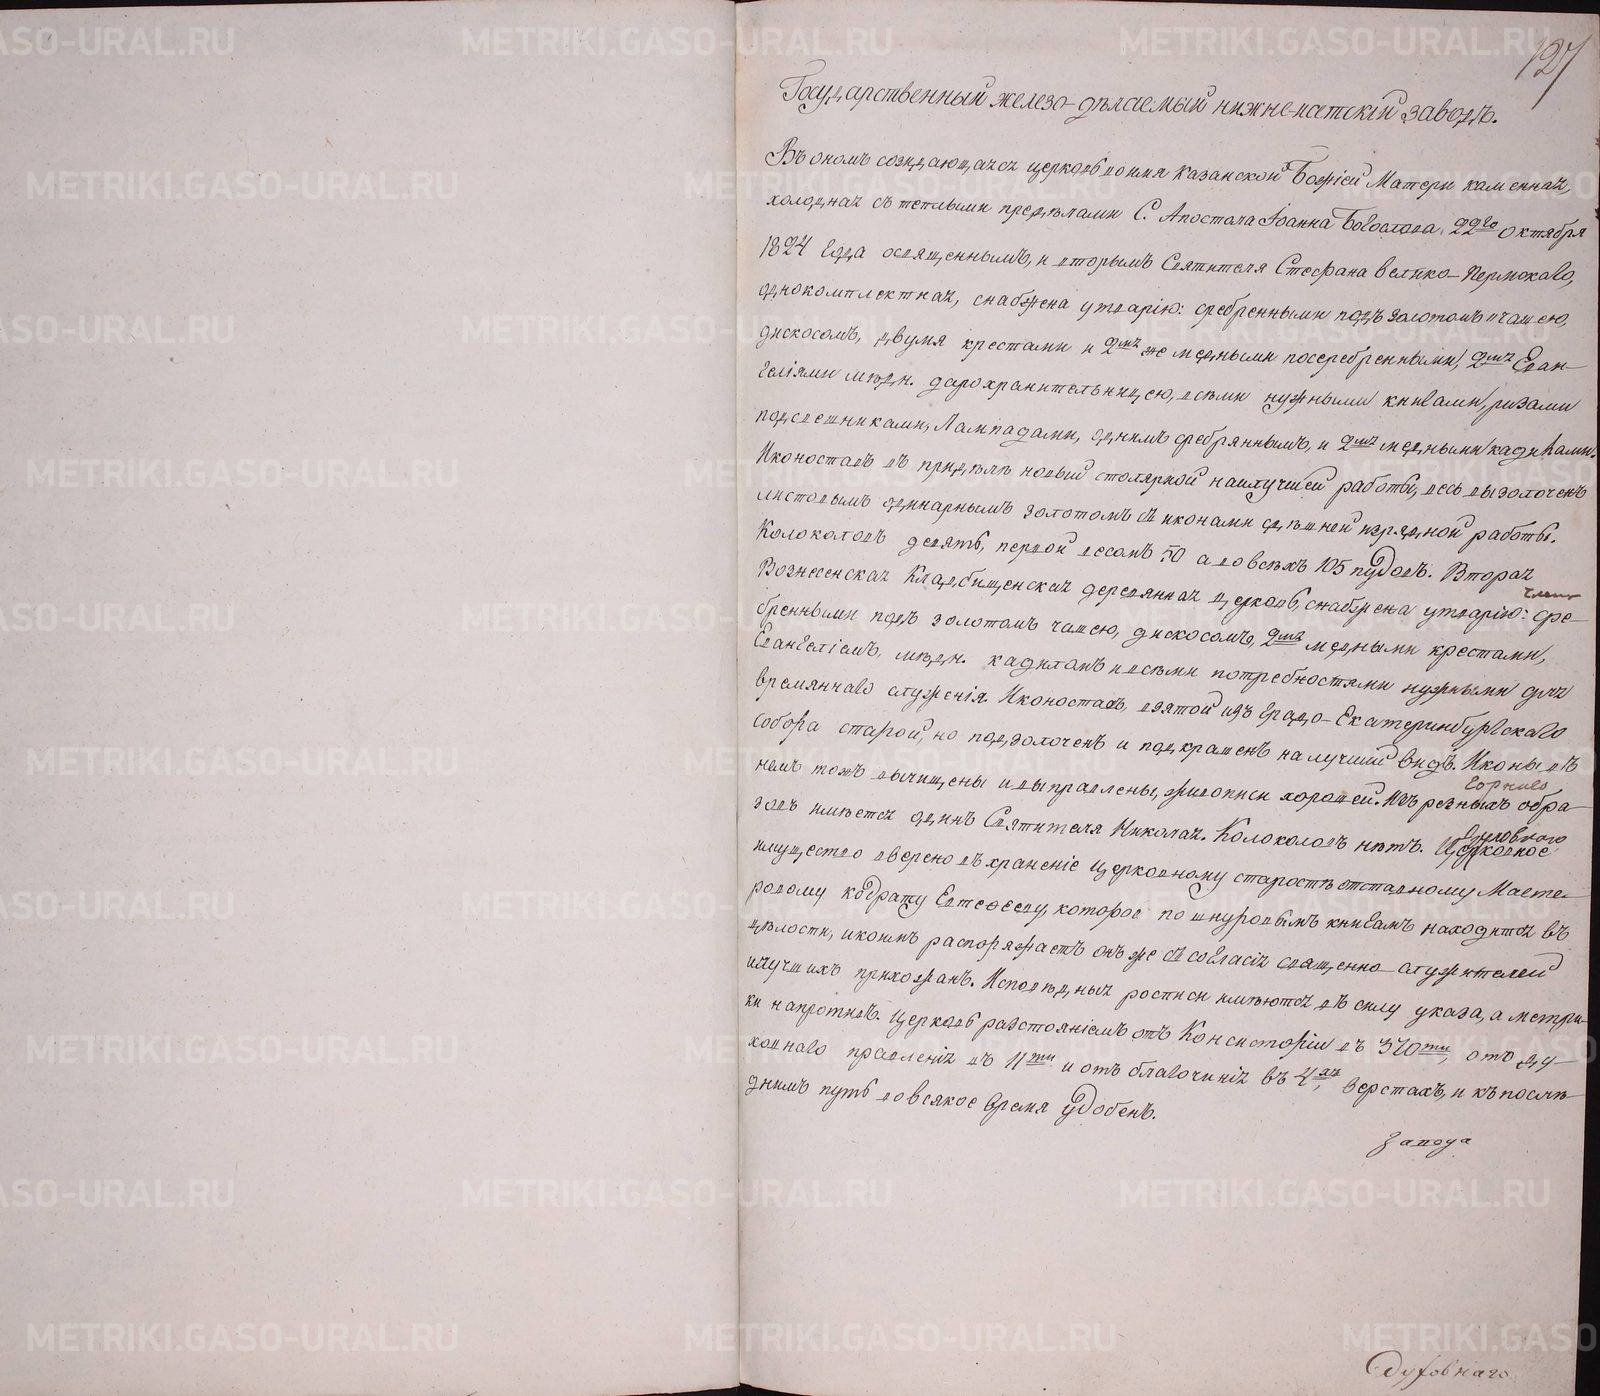 127
Государственный железо-дѣлаемый нижне-исетскій заводъ.
Въ ономъ созидающаяся церковь во имя Казанской Божіей Матери каменная,
холодная съ теплыми предѣлами С. Апостола Іоанна Богослова, 22го октября
1824 года освященнымъ, и вторымъ Святителя Стефана велико-Пермскаго,
однокомплектная, снабжена утварію: сребренными подъ золотомъ чашею,
дискосомъ, двумя крестами и 2мя же медными посеребренными, 2мя Еван-
геліями мѣдн. дарохранительницею, всѣми нужными книгами, ризами
подсвешниками, Лампадами, однимъ сребряннымъ, и 2мя медными кадилами.
Иконостасъ въ придѣлѣ новый столярной наилучшей работы, весь вызолоченъ
листовымъ одинарнымъ золотомъ съ иконами здѣшней изрядной работы.
Колоколовъ девять, первой весомъ 50 а во всѣхъ 105 пудовъ. Вторая
Вознесенская Кладбищенская деревянная церковь, снабжена утварію: сре-
бренными подъ золотомъ чашею, дискосомъ, 2мя медными крестами,
Евангеліемъ, мѣдн. кадиломъ и всѣми потребностями нужными для
времяннаго служенія. Иконостасъ, взятой изъ Градо-Екатеринбургскаго
собора старой, но подзолоченъ и подкрашенъ на лучшій видъ. Иконы въ
немъ тожъ вычищены и выправлены, живописи хорошей. Изъ резныхъ обра-
Горнаго
зовъ имѣется одинъ Святителя Николая. Колоколовъ нѣтъ. Церковное
имущество вверено въ храненіе Церковному старостѣ отставному Масте-
ровому Кодрату Евтефееву, которое по шнуровымъ книгамъ находится въ
цѣлости, и коимъ распоряжаетъ онъ же съ согласія священно-служителей
и лучшихъ прихожанъ. Исповѣдныя росписи имѣются въ силу указа, а метри-
ки напротивъ. Церковь разстояніемъ отъ Консисторіи въ 370ти, отъ ду-
ховнаго правленія въ 11ти и отъ благочинія въ 4хъ верстахъ, и къ послѣ-
днимъ путь во всякое время удобенъ.
завода
Духовнаго
METRIKI.GASO-URAL.RU